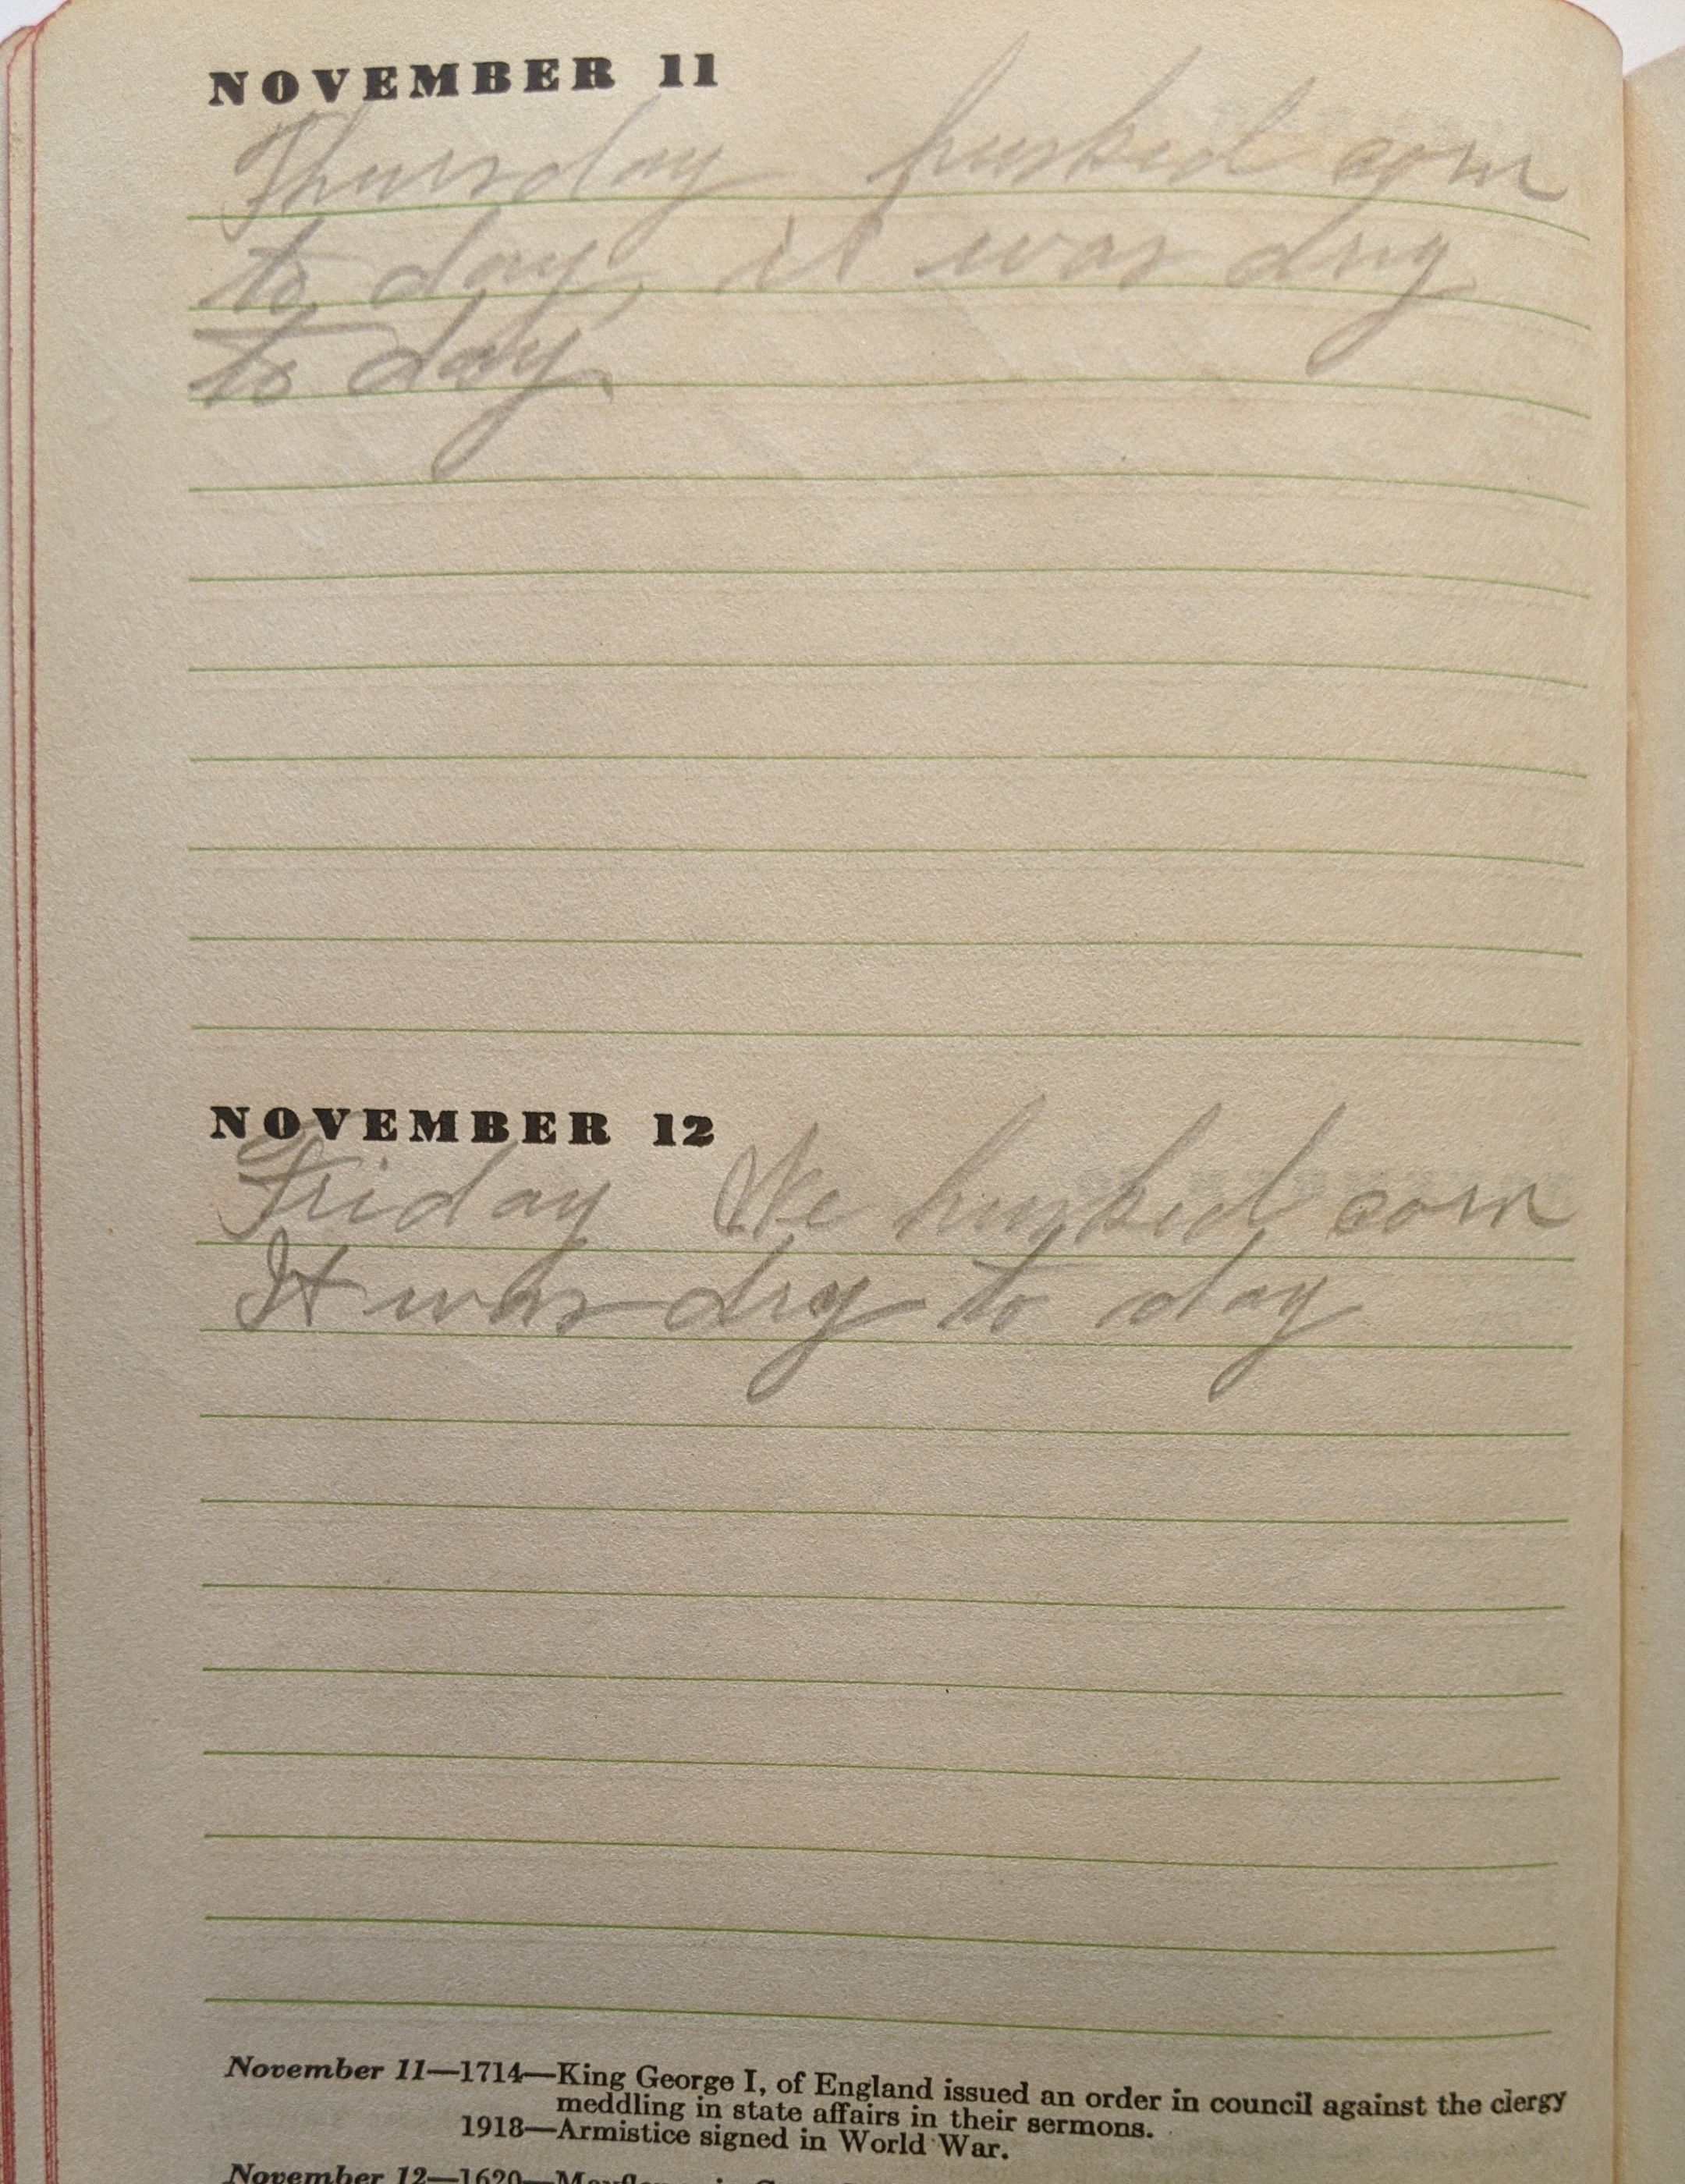 NOVEMBER 11
Thursday husked corn
to day, it was dry
to day.
NOVEMBER 12
Friday We husked corn
It was dry to day
November 11—1714—King George I, of England issued an order in council against the clergy
meddling in state affairs in their sermons.
1918—Armistice signed in World War.
November 12—1620—